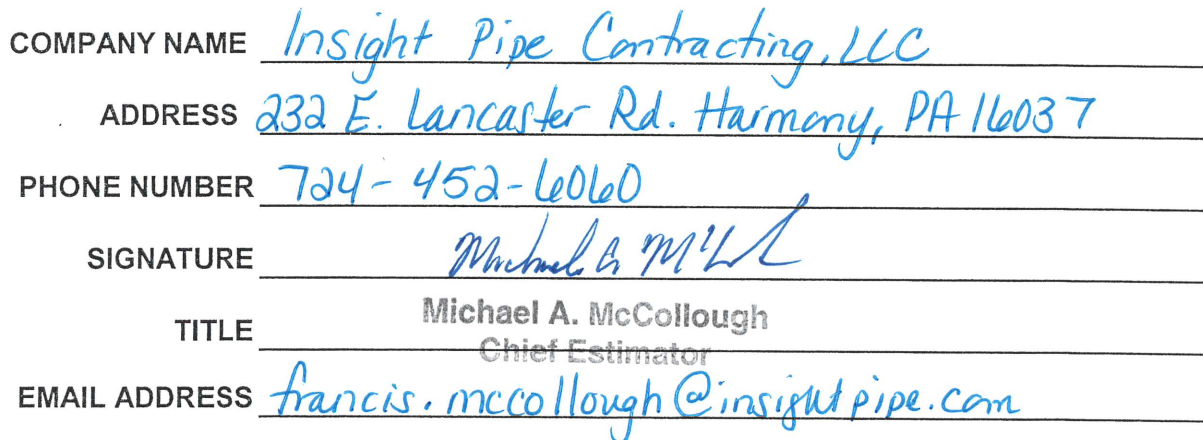 COMPANY NAME Insight Pipe Contracting, LLC
ADDRESS 232 E. Lancaster Rd. Harmony, PA 16037
PHONE NUMBER 724-452-6060
SIGNATURE Michael A McC
TITLE Michael A. McCollough
Chief Estimator
EMAIL ADDRESS francis.mccollough@insightpipe.com